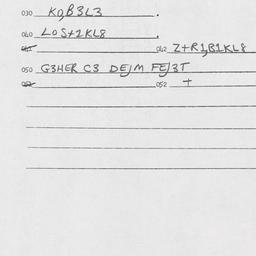 030 KO,B3L3.
040 LOS+2KL8.
041 042 Z+R1,B1KL8
050 G3HER C3 DEJM FEJ3T
052 052 +